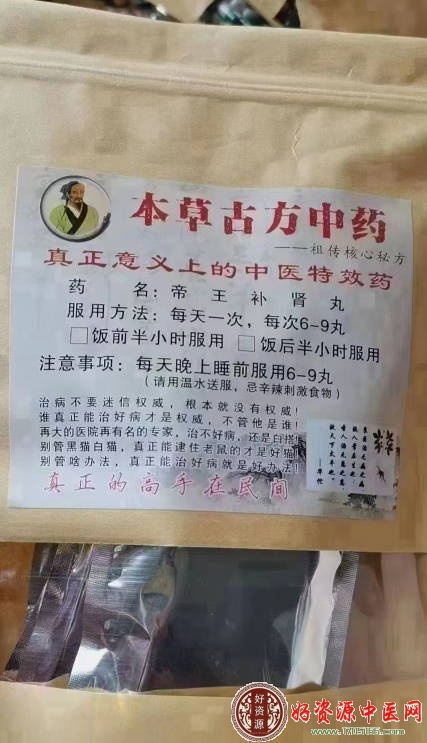 本草古方中药
——祖传核心秘方
真正意义上的中医特效药
药 名：帝 王 补 肾 丸
服用方法：每天一次，每次6-9丸
□饭前半小时服用 □饭后半小时服用
注意事项：每天晚上睡前服用6-9丸
（请用温水送服，忌辛辣刺激食物）
治病不要迷信权威，根本就没有权威！
谁真正能治好病才是权威，不管他是谁！
再大的医院再有名的专家，治不好病，还是白搭
别管黑猫白猫，真正能逮住老鼠的才是好猫
别管啥办法，真正能治好病就是好办法！
真正的高手在民间
好资源
好资源中医网